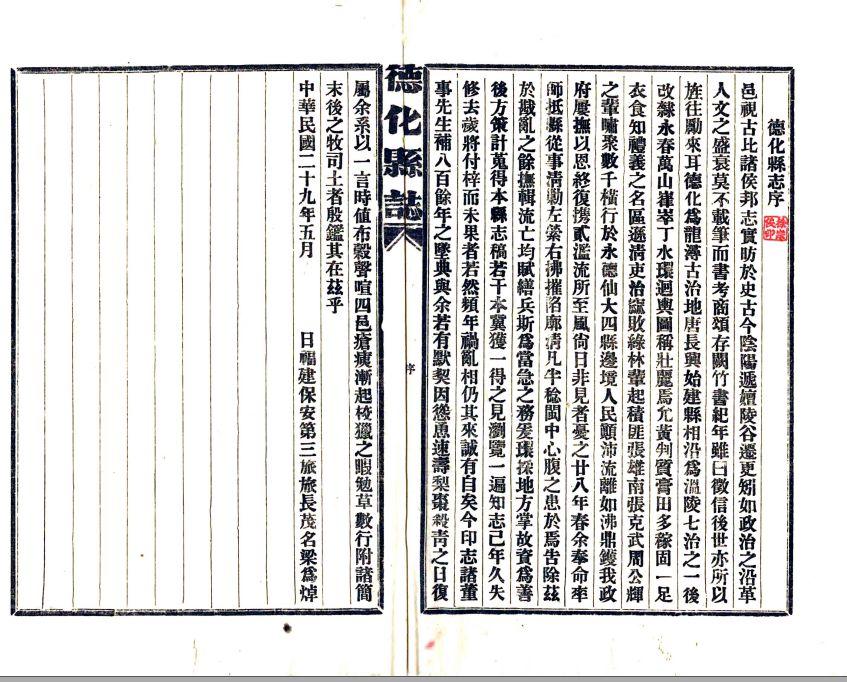 德化縣志序
邑視古比諸侯邦志實昉於史古今陰陽遞嬗陵谷遷更矧如政治之沿革
人文之盛衰莫不載筆而書考商頌存闕竹書紀年雖曰徵信後世亦所以
旌往勵來耳德化爲龍潯古治地唐長興始建縣相沿爲溫陵七治之一後
改隸永春萬山嶊崒丁水環迴輿圖稱壯麗焉尤黃判質膏田多稼固一足
衣食知禮義之名區遜清吏治窳敗綠林輩起積匪張雄南張克武周公輝
之輩嘯衆數千橫行於永德仙大四縣邊境人民顚沛流離如沸鼎鑊我政
府屢撫以恩終復攜貳濫流所至風尙日非見者憂之廿八年春余奉命率
師抵縣從事淸勦左縈右拂摧陷廓淸凡半稔閩中心腹之患於焉吿除茲
於戡亂之餘撫輯流亡均賦繕兵斯爲當急之務爰環採地方掌故資爲善
後方策計蒐得本縣志稿若干本冀獲一得之見瀏覽一遍知志已年久失
修去歲將付梓而未果者若然頻年禍亂相仍其來誠有自矣今印志諸董
事先生補八百餘年之墜典與余若有默契因慫恿速壽梨棗殺靑之日復
德化縣誌
序
屬余系以一言時値布穀聲喧四邑瘡痍漸起校獵之暇勉草數行附諸簡
末後之牧司土者殷鑑其在茲乎
中華民國二十九年五月 日福建保安第三旅旅長茂名梁爲焯